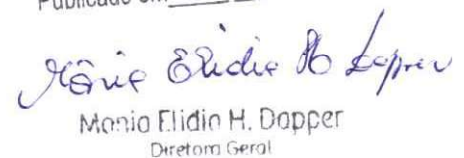 Publicado em
Mônia Elidia H. Dapper
Mônia Elidia H. Dapper
Diretora Geral